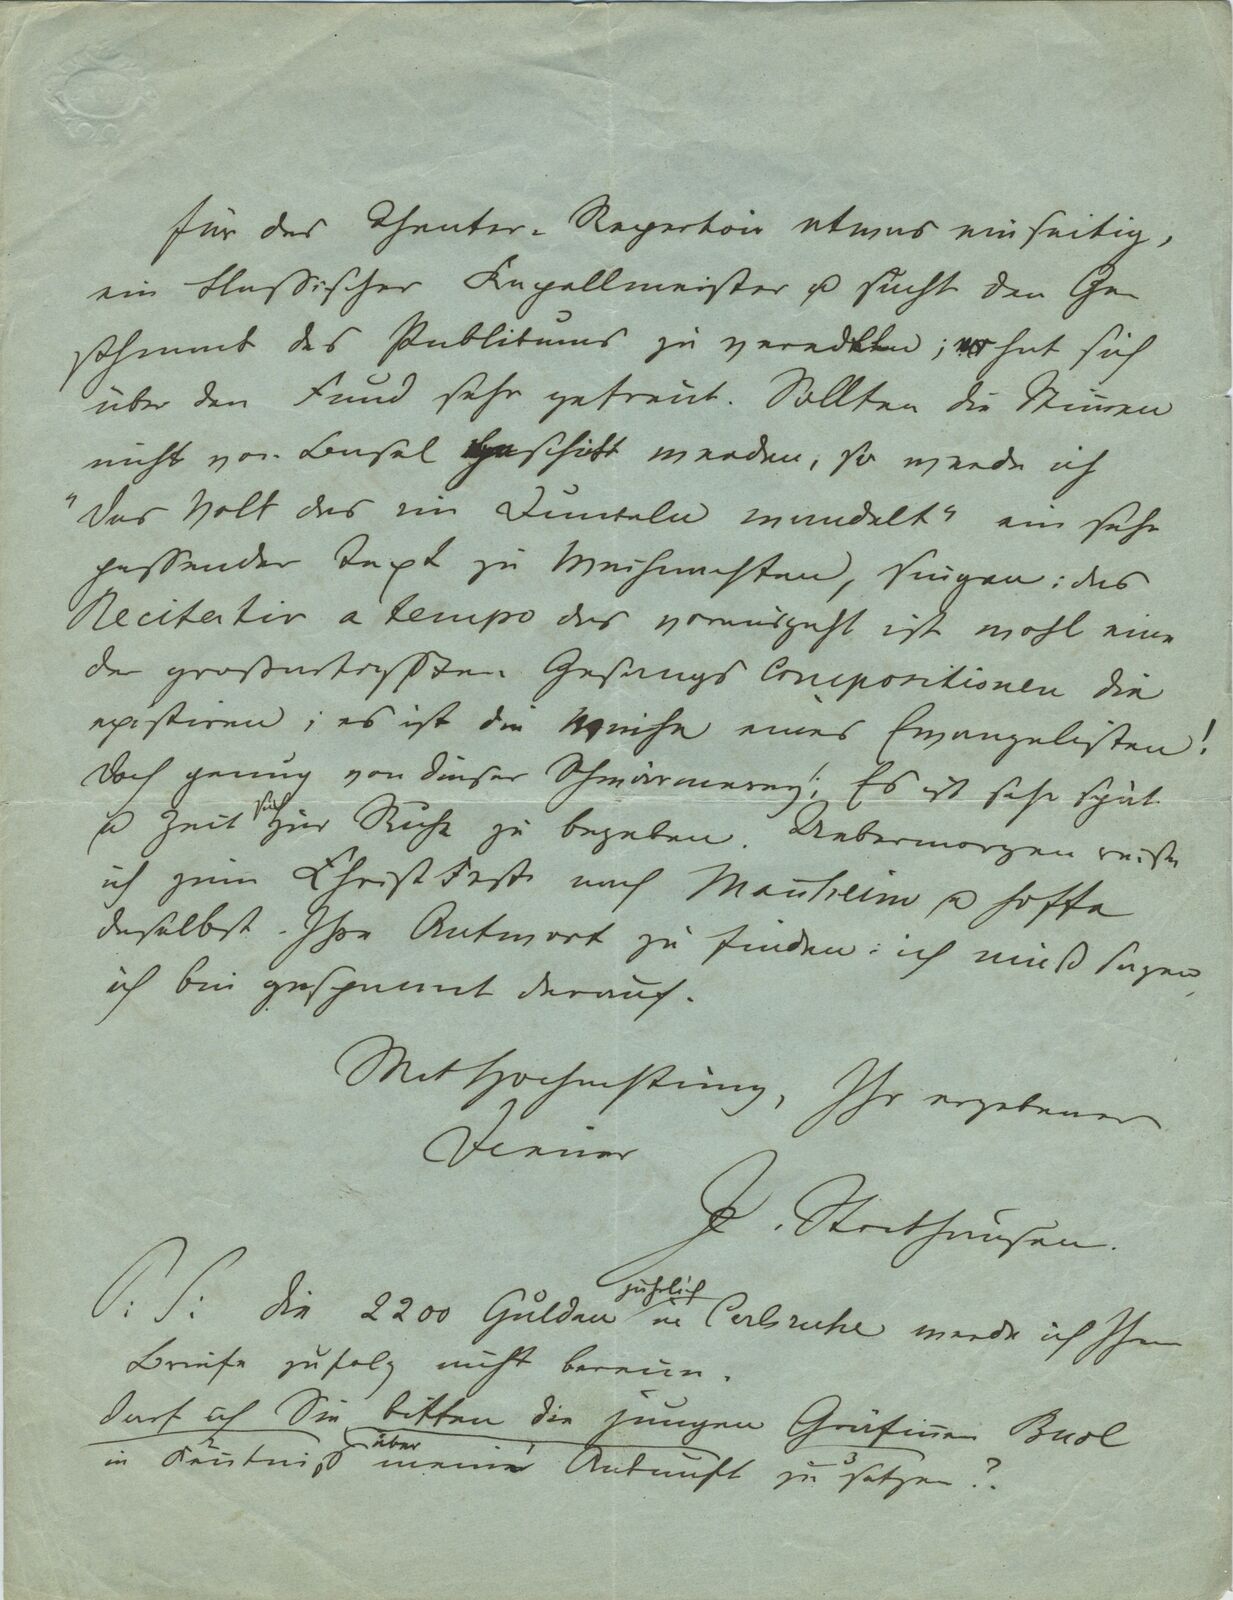 für das Theater-Repertoir etwas einseitig,
ein klassischer Kapellmeister u sucht den Ge-
schmack des Publikums zu veredeln; er hat sich
über den Fund sehr gefreut. Sollten die Stim̅en
nicht von Basel geschickt werden, so werde ich
"Das Volk das im Dunkeln wandelt" ein sehr
passender Text zu Weihnachten, singen: das
Recitativ a tempo das vorausgeht ist wohl eine
der großartigsten Gesangs Compositionen die
existiren; es ist die Weihe eines Evangelisten!
Doch genug von dieser Schwärmerey! Es ist sehr spät
u Zeit sich zur Ruhe zu begeben. Uebermorgen reise
ich zum ChristFeste nach Manheim u hoffe
daselbst Ihre Antwort zu finden: ich muß sagen
ich bin gespannt darauf.
Mit Hochachtung, Ihr ergebener
Diener
J. Stockhausen.
P: S: die 2200 Gulden jährlich in Carlsruhe werde ich Ihrem
Briefe zufolg nicht bereun.
Darf ich Sie bitten die jungen Gräfin̅en Buol
in Ken̅tniß über meine Ankunft zu setzen?